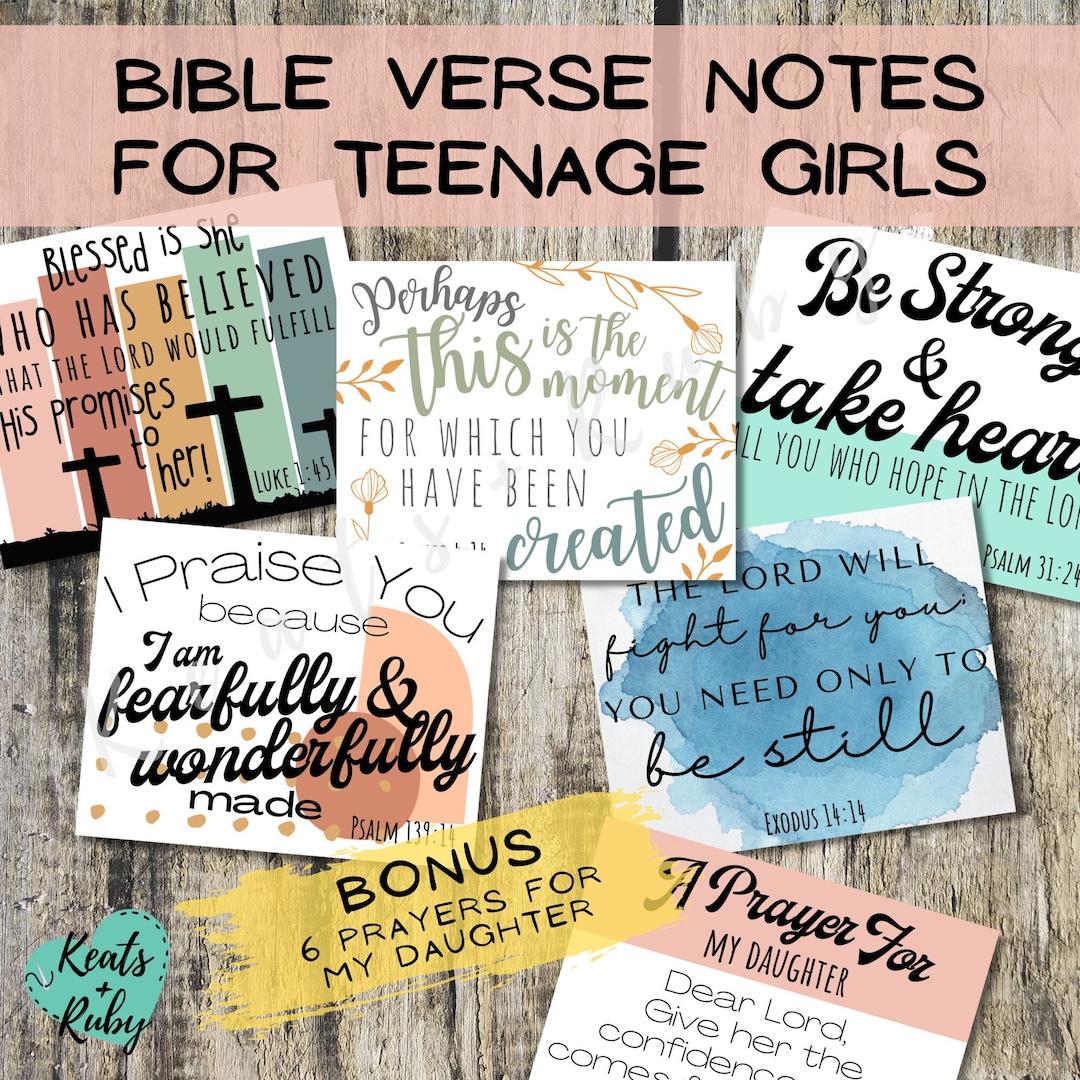 BIBLE VERSE NOTES
FOR TEENAGE GIRLS
Blessed is She
WHO HAS BELIEVED
THAT THE LORD WOULD FULFILL
His promises
to
her!
LUKE 1:45
Perhaps
this is the
moment
FOR WHICH YOU
HAVE BEEN
created
Be Strong
&
take heart
ALL YOU WHO HOPE IN THE LORD
PSALM 31:24
I Praise You
because
I am
fearfully &
wonderfully
made
PSALM 139:14
THE LORD WILL
fight for you;
YOU NEED ONLY TO
be still
EXODUS 14:14
BONUS
6 PRAYERS FOR
MY DAUGHTER
A Prayer For
MY DAUGHTER
Dear Lord,
Give her the
confidence
comes
Keats
+
Ruby
Keats + Ruby